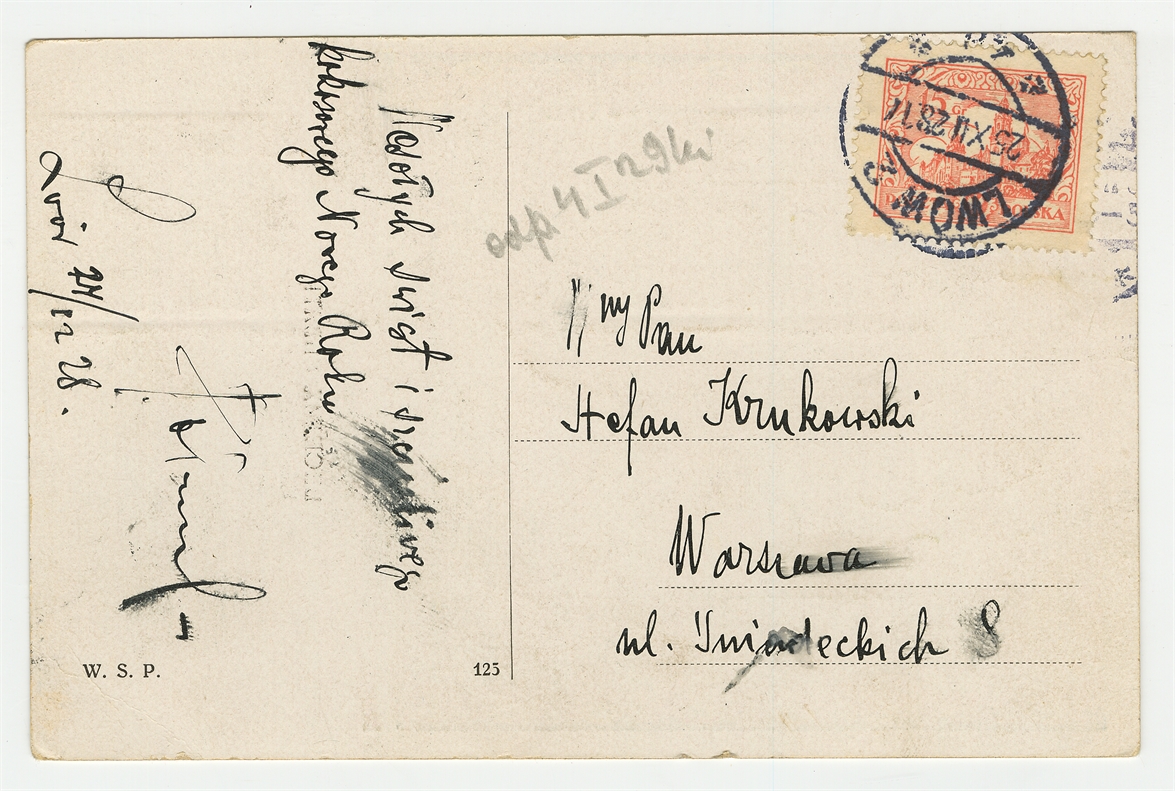 Wesołych świąt i szczęśliwego
Nowego Roku
Lwów 24/12 28.
odp 4 I 29
LWÓW
25.XII.28.17
15 GR
POLSKA
Wny Pan
Stefan Krukowski
Warszawa
ul. Śniadeckich 8
W. S. P.
125